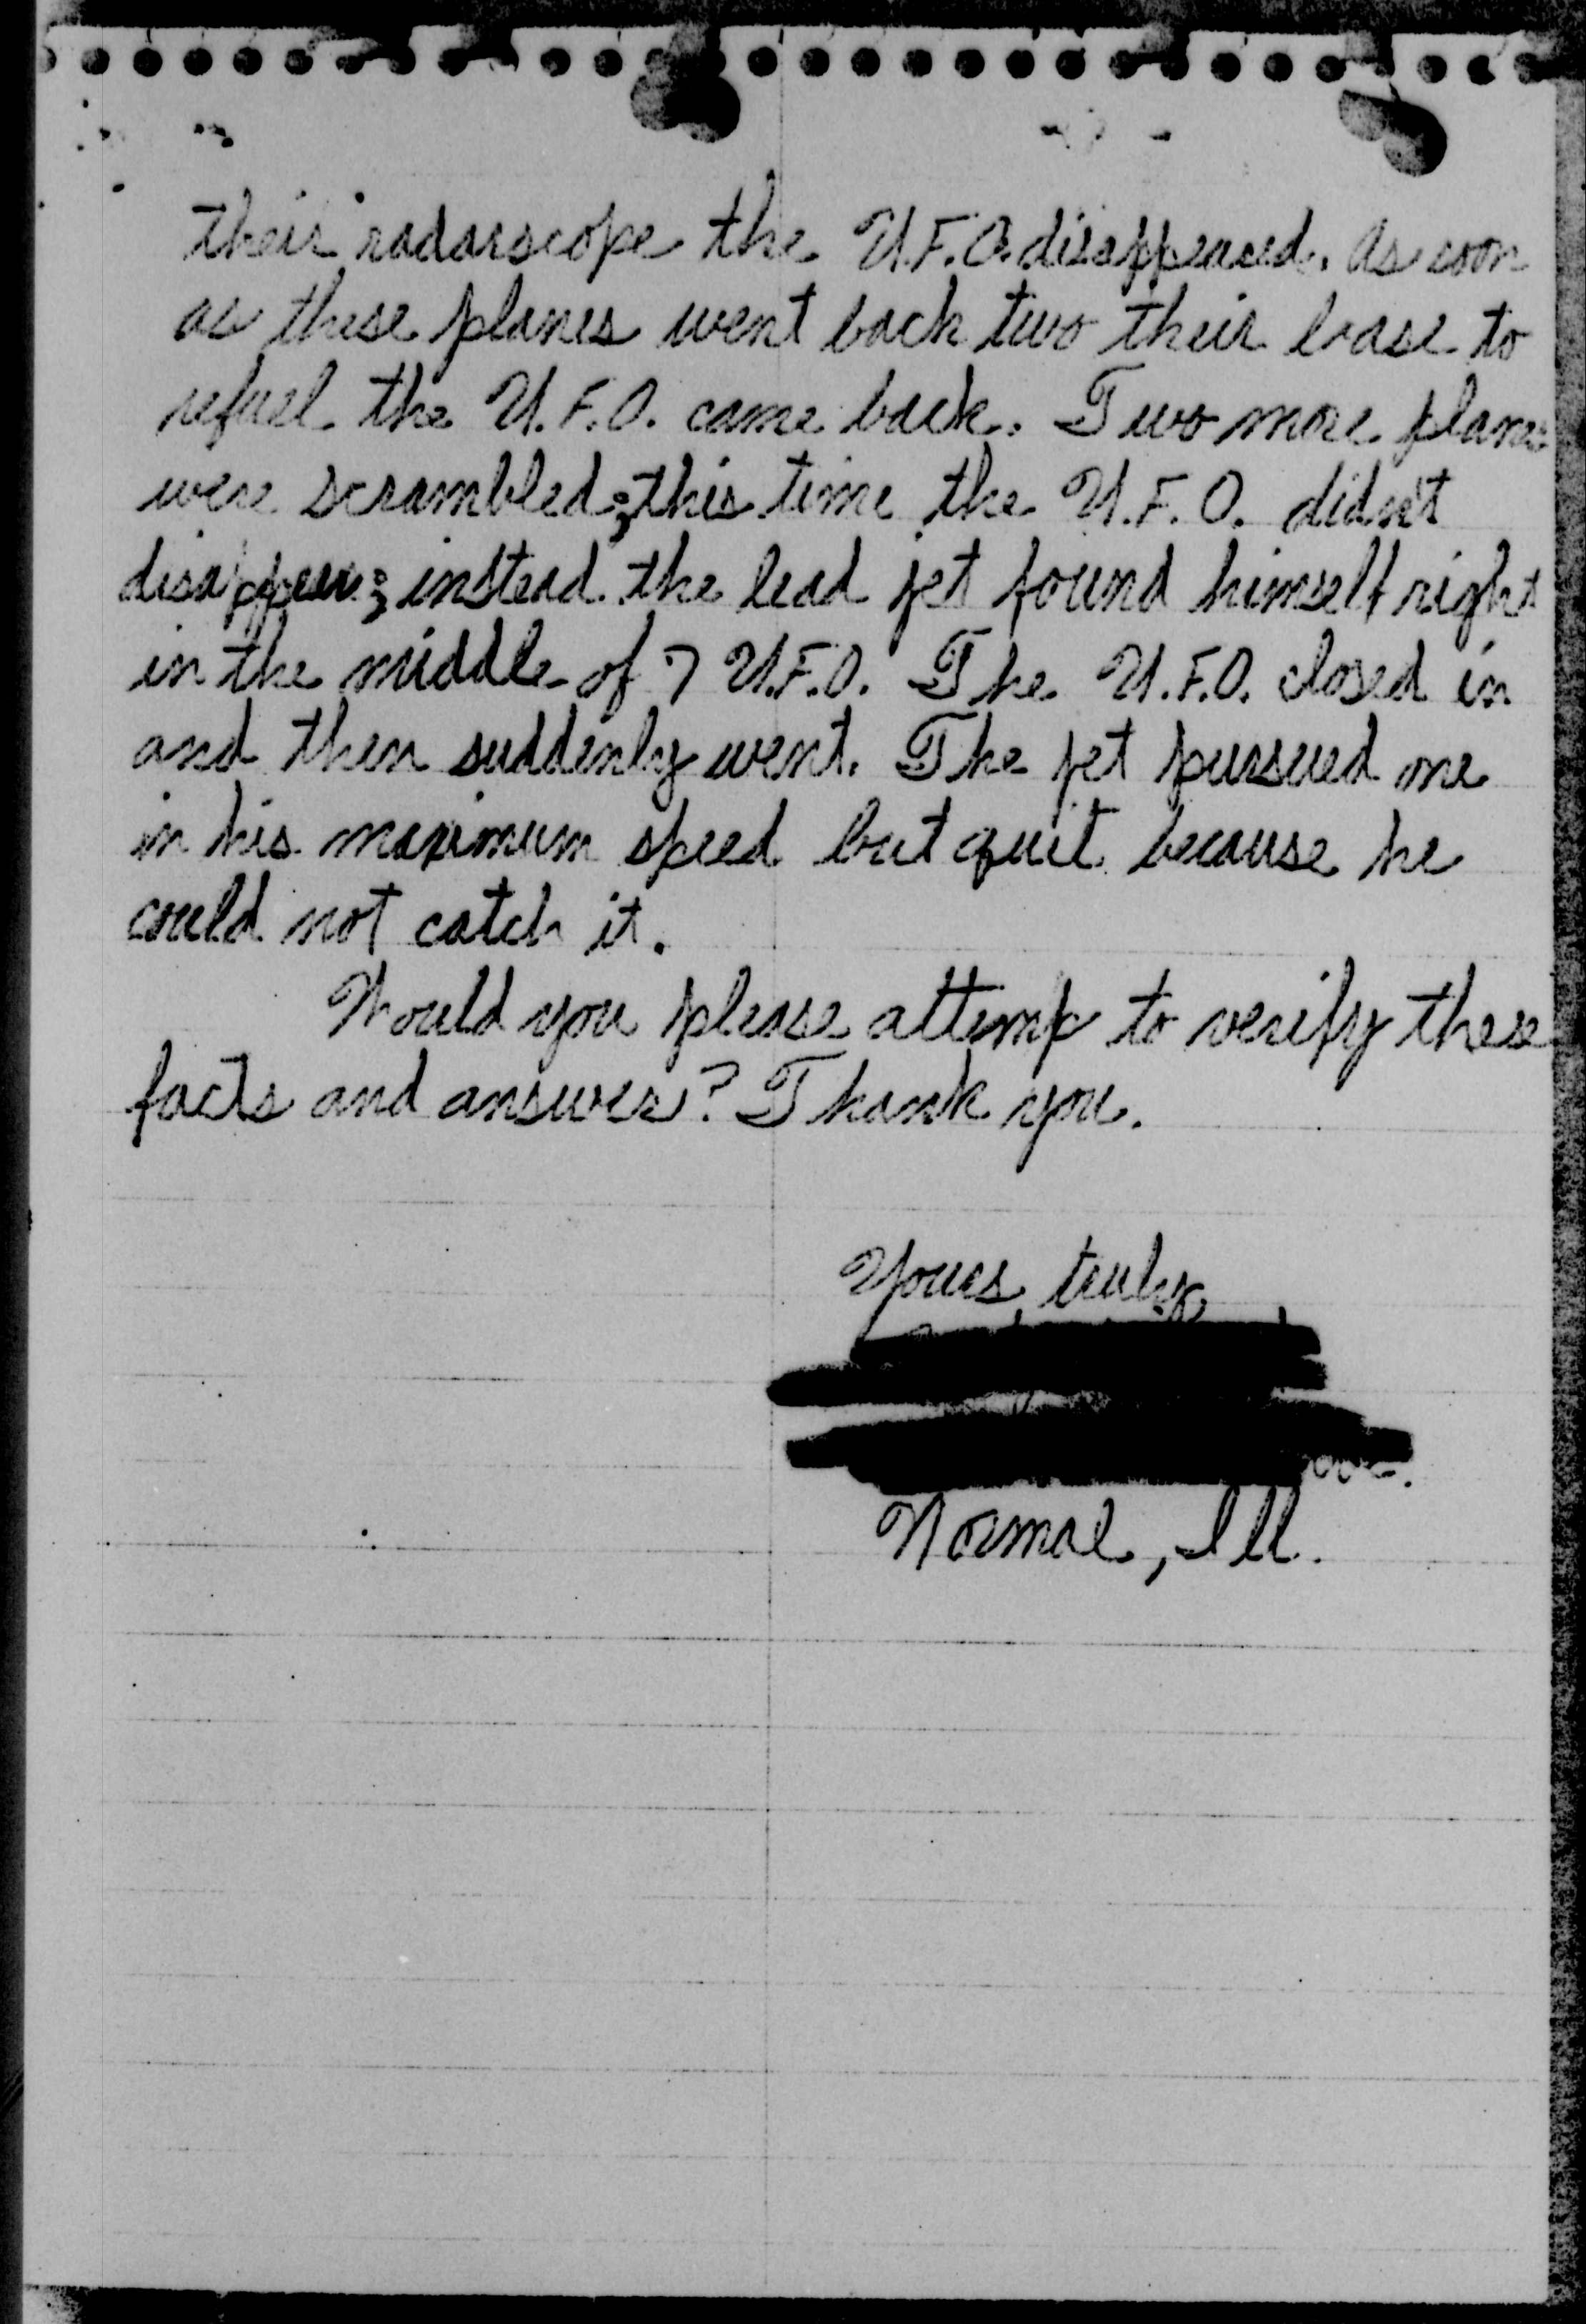 their radarscope the U.F.O. disappeared. As soon
as these planes went back two their base to
refuel the U.F.O. came back. Two more planes
were scrambled; this time the U.F.O. didn't
disappear; instead the lead jet found himself right
in the middle of 7 U.F.O. The U.F.O. closed in
and then suddenly went. The jet pursued one
in his maximum speed but quit because he
could not catch it.
Would you please attemp to verify these
facts and answer? Thank you.
Yours truly,
Normal, Ill.